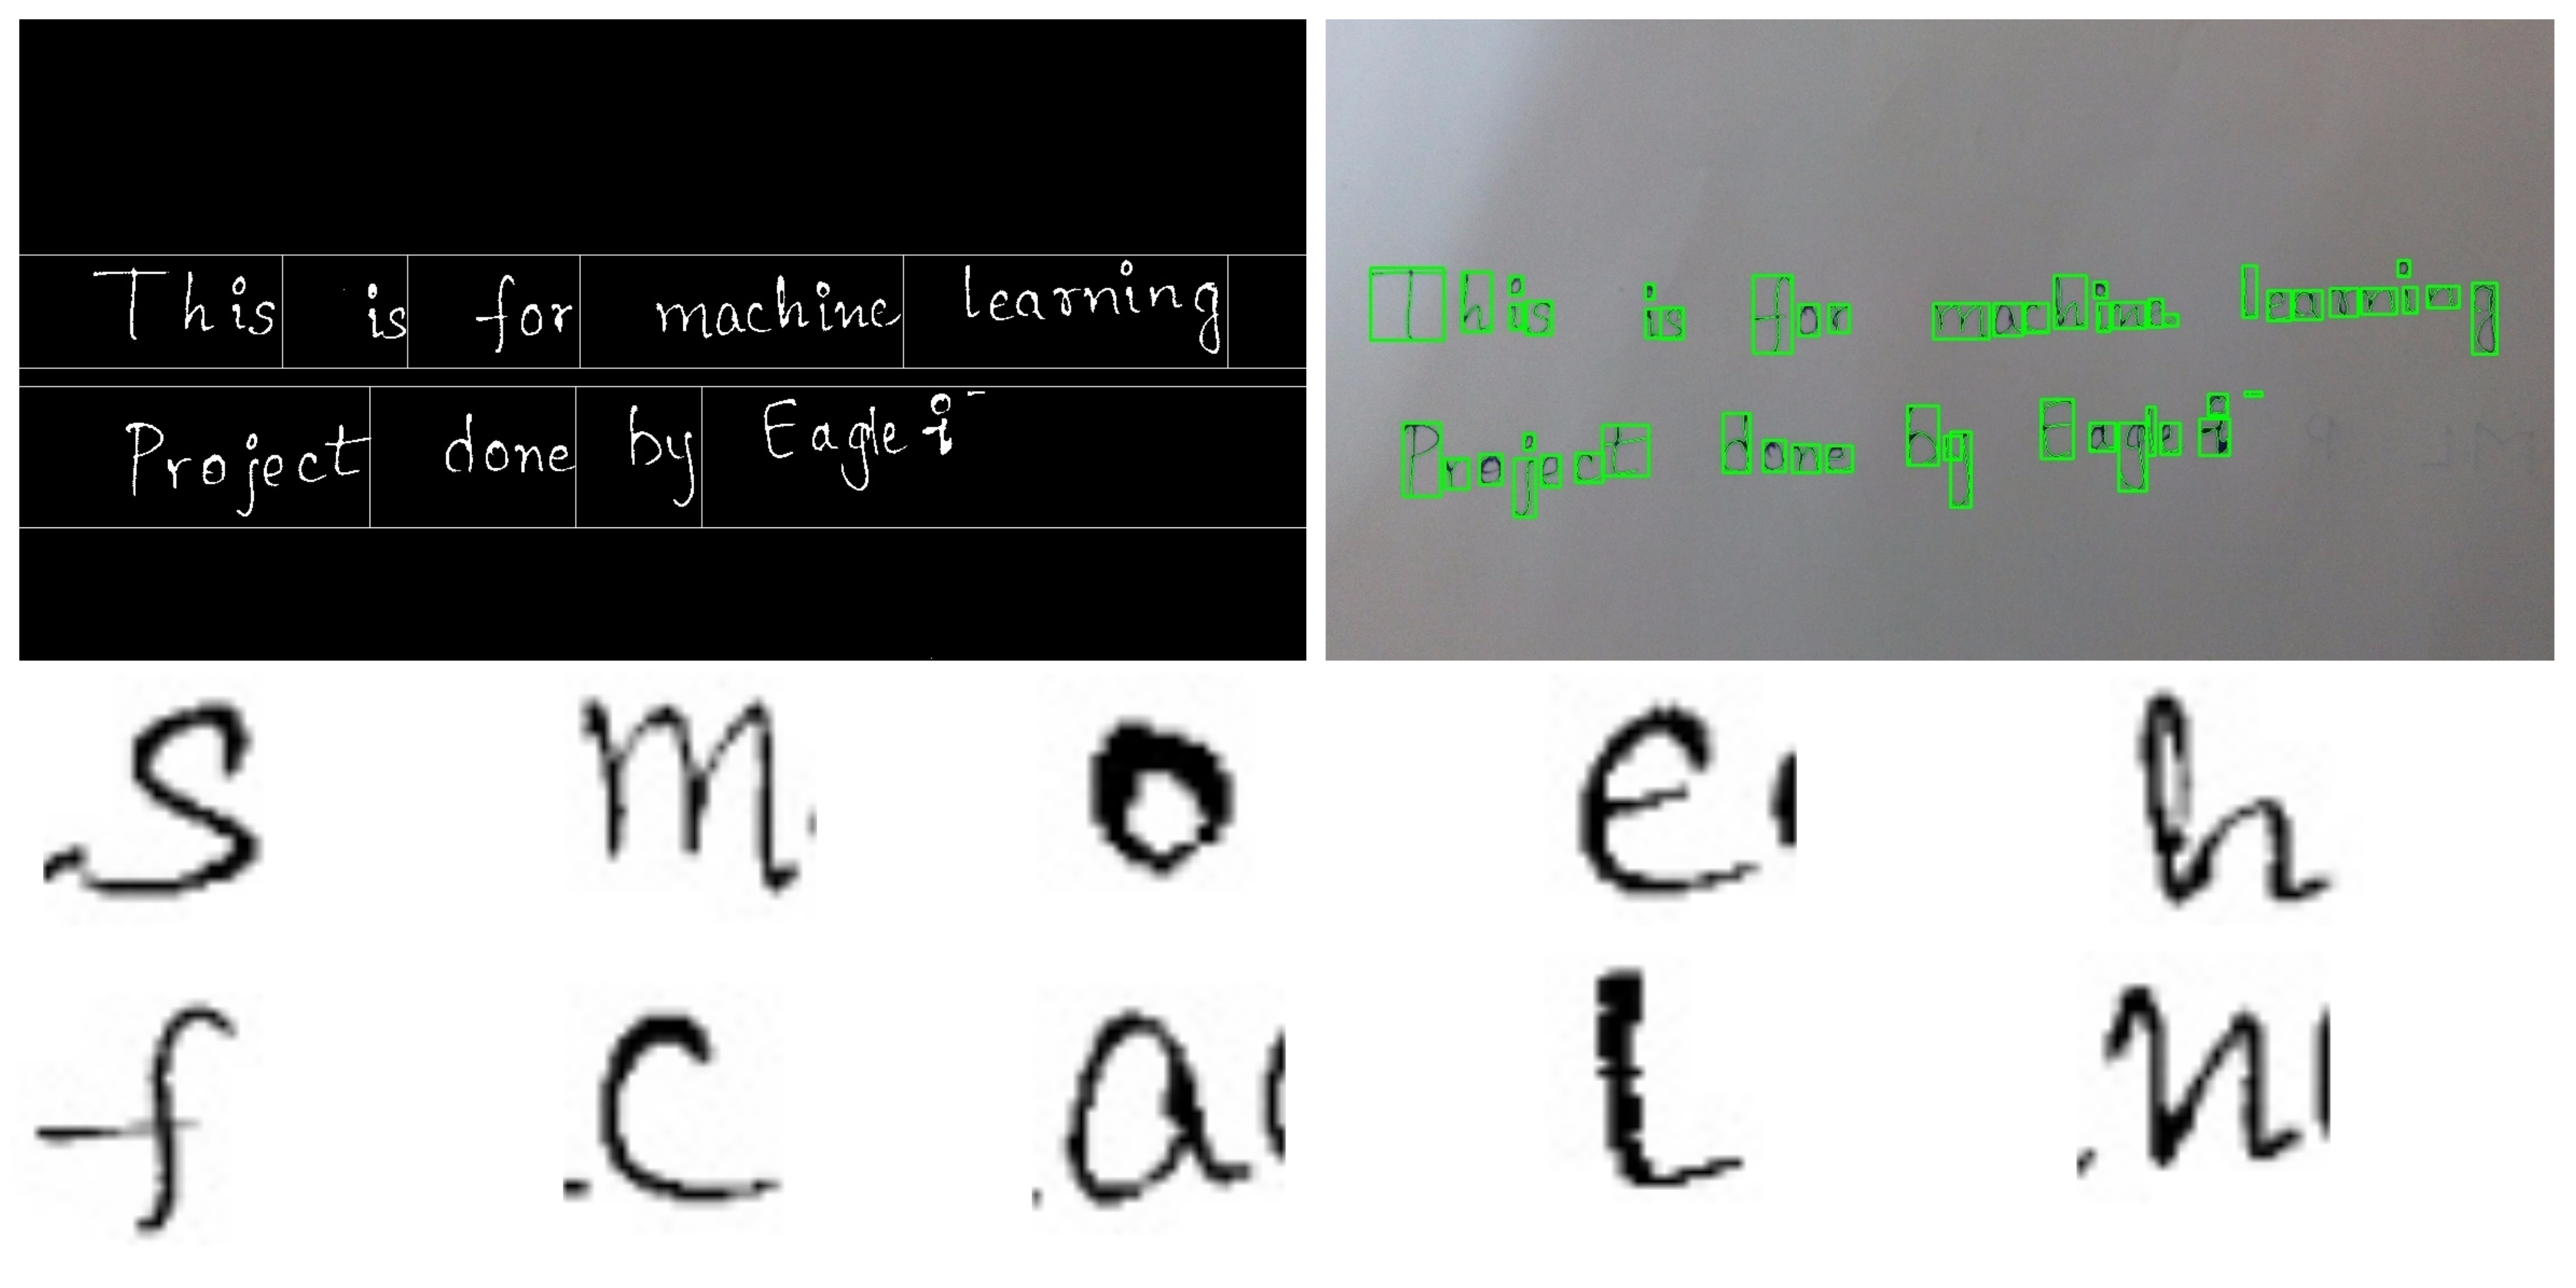 This is for machine learning
Project done by Eagle i-
This is for machine learning
Project done by Eagle i-
s m o e h
f c a l n